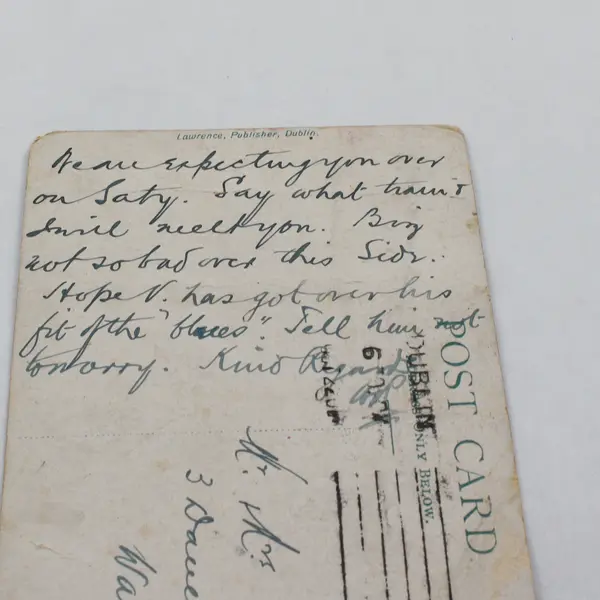 Lawrence, Publisher, Dublin.
We are expecting you over
on Saty. Say what train &
I will meet you. Biz
not so bad over this Side.
Hope V. has got over his
fit of the "blues". Tell him not
to worry. Kind Regards
POST CARD
ONLY BELOW.
DUBLIN
Mr Mrs
3